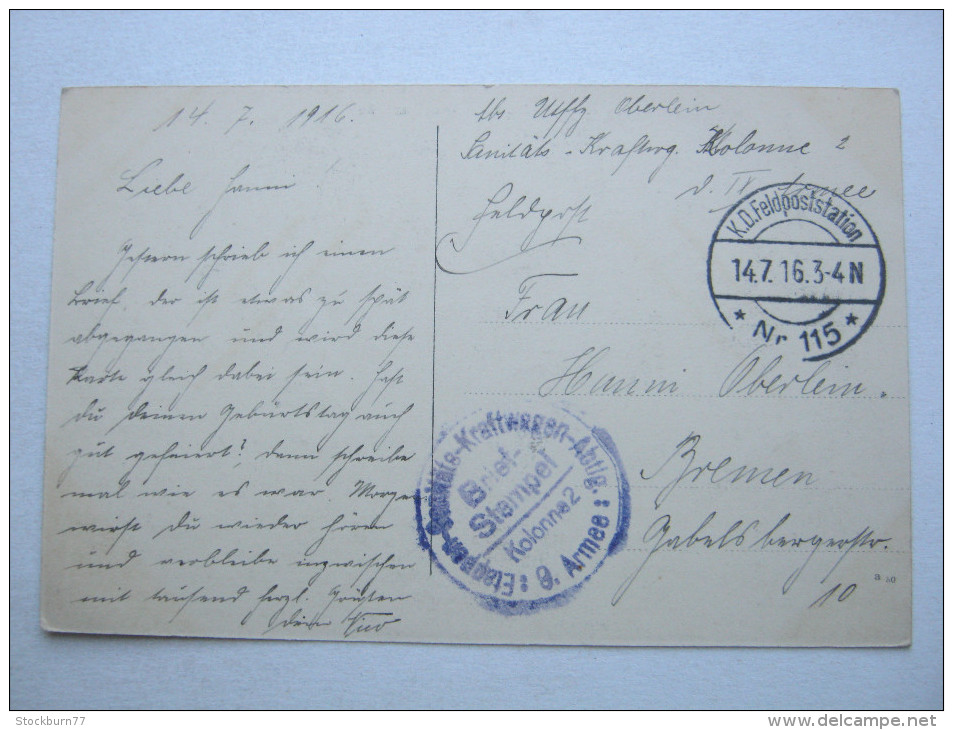 14. 7. 1916.
Liebe Hanni
Gestern schrieb ich einen
Brief, der ist etwas zu spät
abgegangen und wird diese
Karte gleich dabei sein. Hast
du deinen Geburtstag auch
gut gefeiert? dann schreibe
mal wie es war. Morgen
wirst du wieder hören
und verbleibe inzwischen
mit tausend herzl. Grüßen
dein
Abs. Utffz Oberlein
Sanitäts-Kraftwg. Kolonne 2
d. IX Armee
Feldpost
K.D. Feldpoststation
14.7.16.3-4N
* Nr 115 *
Frau
Hanni Oberlein.
Bremen
Gabelsbergerstr.
10
a 50
Etappen-Sanitäts-Kraftwagen-Abtlg.:
Brief-
Stempel
Kolonne 2
: 9. Armee :
Stockburn77
www.delcampe.net